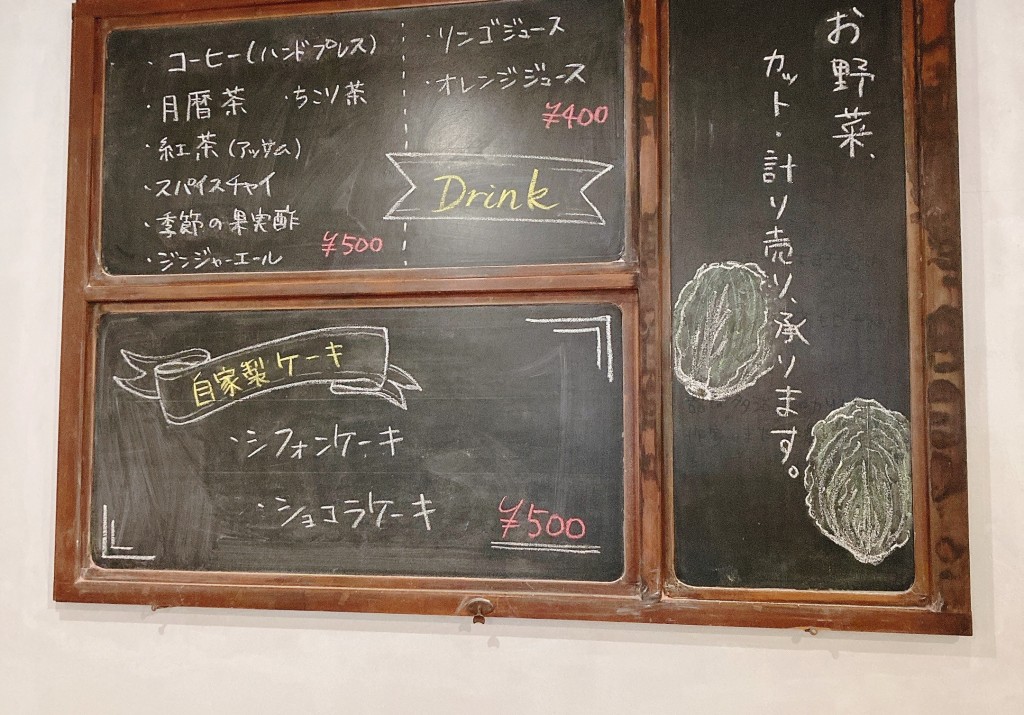 ・コーヒー(ハンドプレス)
・月暦茶 ・ちこり茶
・紅茶(アッサム)
・スパイスチャイ
・季節の果実酢
・ジンジャーエール
¥500
・リンゴジュース
・オレンジジュース
¥400
Drink
自家製ケーキ
・シフォンケーキ
・ショコラケーキ
¥500
お野菜、
カット・計り売り、承ります。